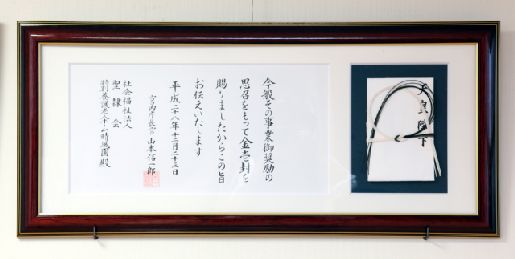 今般その事業御奨励の
思召をもって金壱封を
賜りましたからこの旨
お伝えいたします
平成二十八年十二月二十三日
宮内庁長官 山本信一郎
社会福祉法人
聖隷会
特別養護老人ホーム晴風園 殿
天皇陛下